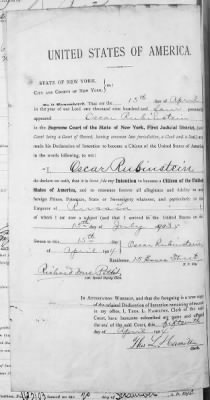 UNITED STATES OF AMERICA.
STATE OF NEW YORK,
CITY AND COUNTY OF NEW YORK,
Be it Remembered, That on the 15th day of April
in the year of our Lord one thousand nine hundred and four personally
appeared Oscar Rubinstein
in the Supreme Court of the State of New York, First Judicial District,
Court being a Court of Record, having common law jurisdiction, a Clerk and a Seal) and
made his Declaration of Intention to become a Citizen of the United States of America
in the words following, to wit:
I, Oscar Rubinstein
do declare on oath, that it is bona fide my Intention to become a Citizen of the United
States of America, and to renounce forever all allegiance and fidelity to any
Foreign Prince, Potentate, State or Sovereignty whatever, and particularly to the
Emperor of Russia
of whom I am now a subject (and that I arrived in the United States on the
day of July 1903
Sworn to this 15th
day of April 1904 Oscar Rubinstein
Residence,
Clerk
IN ATTESTATION WHEREOF, and that the foregoing is a true copy
of the original Declaration of Intention remaining of record
in my office, I, THOS. L. HAMILTON, Clerk of the said
Court, have hereunto subscribed my name and affixed
the seal of the said Court, this fifteenth
day of April 1904
Thos. L. Hamilton
Clerk.